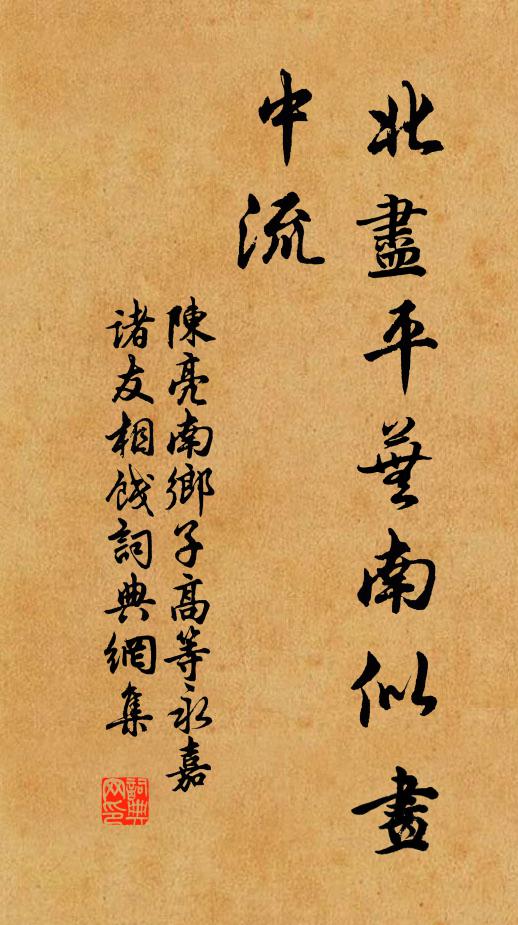 北盡平蕪南似畫
中流
陳亮南鄉子高等永嘉
諸友相餞詞典網集
詞典
网印